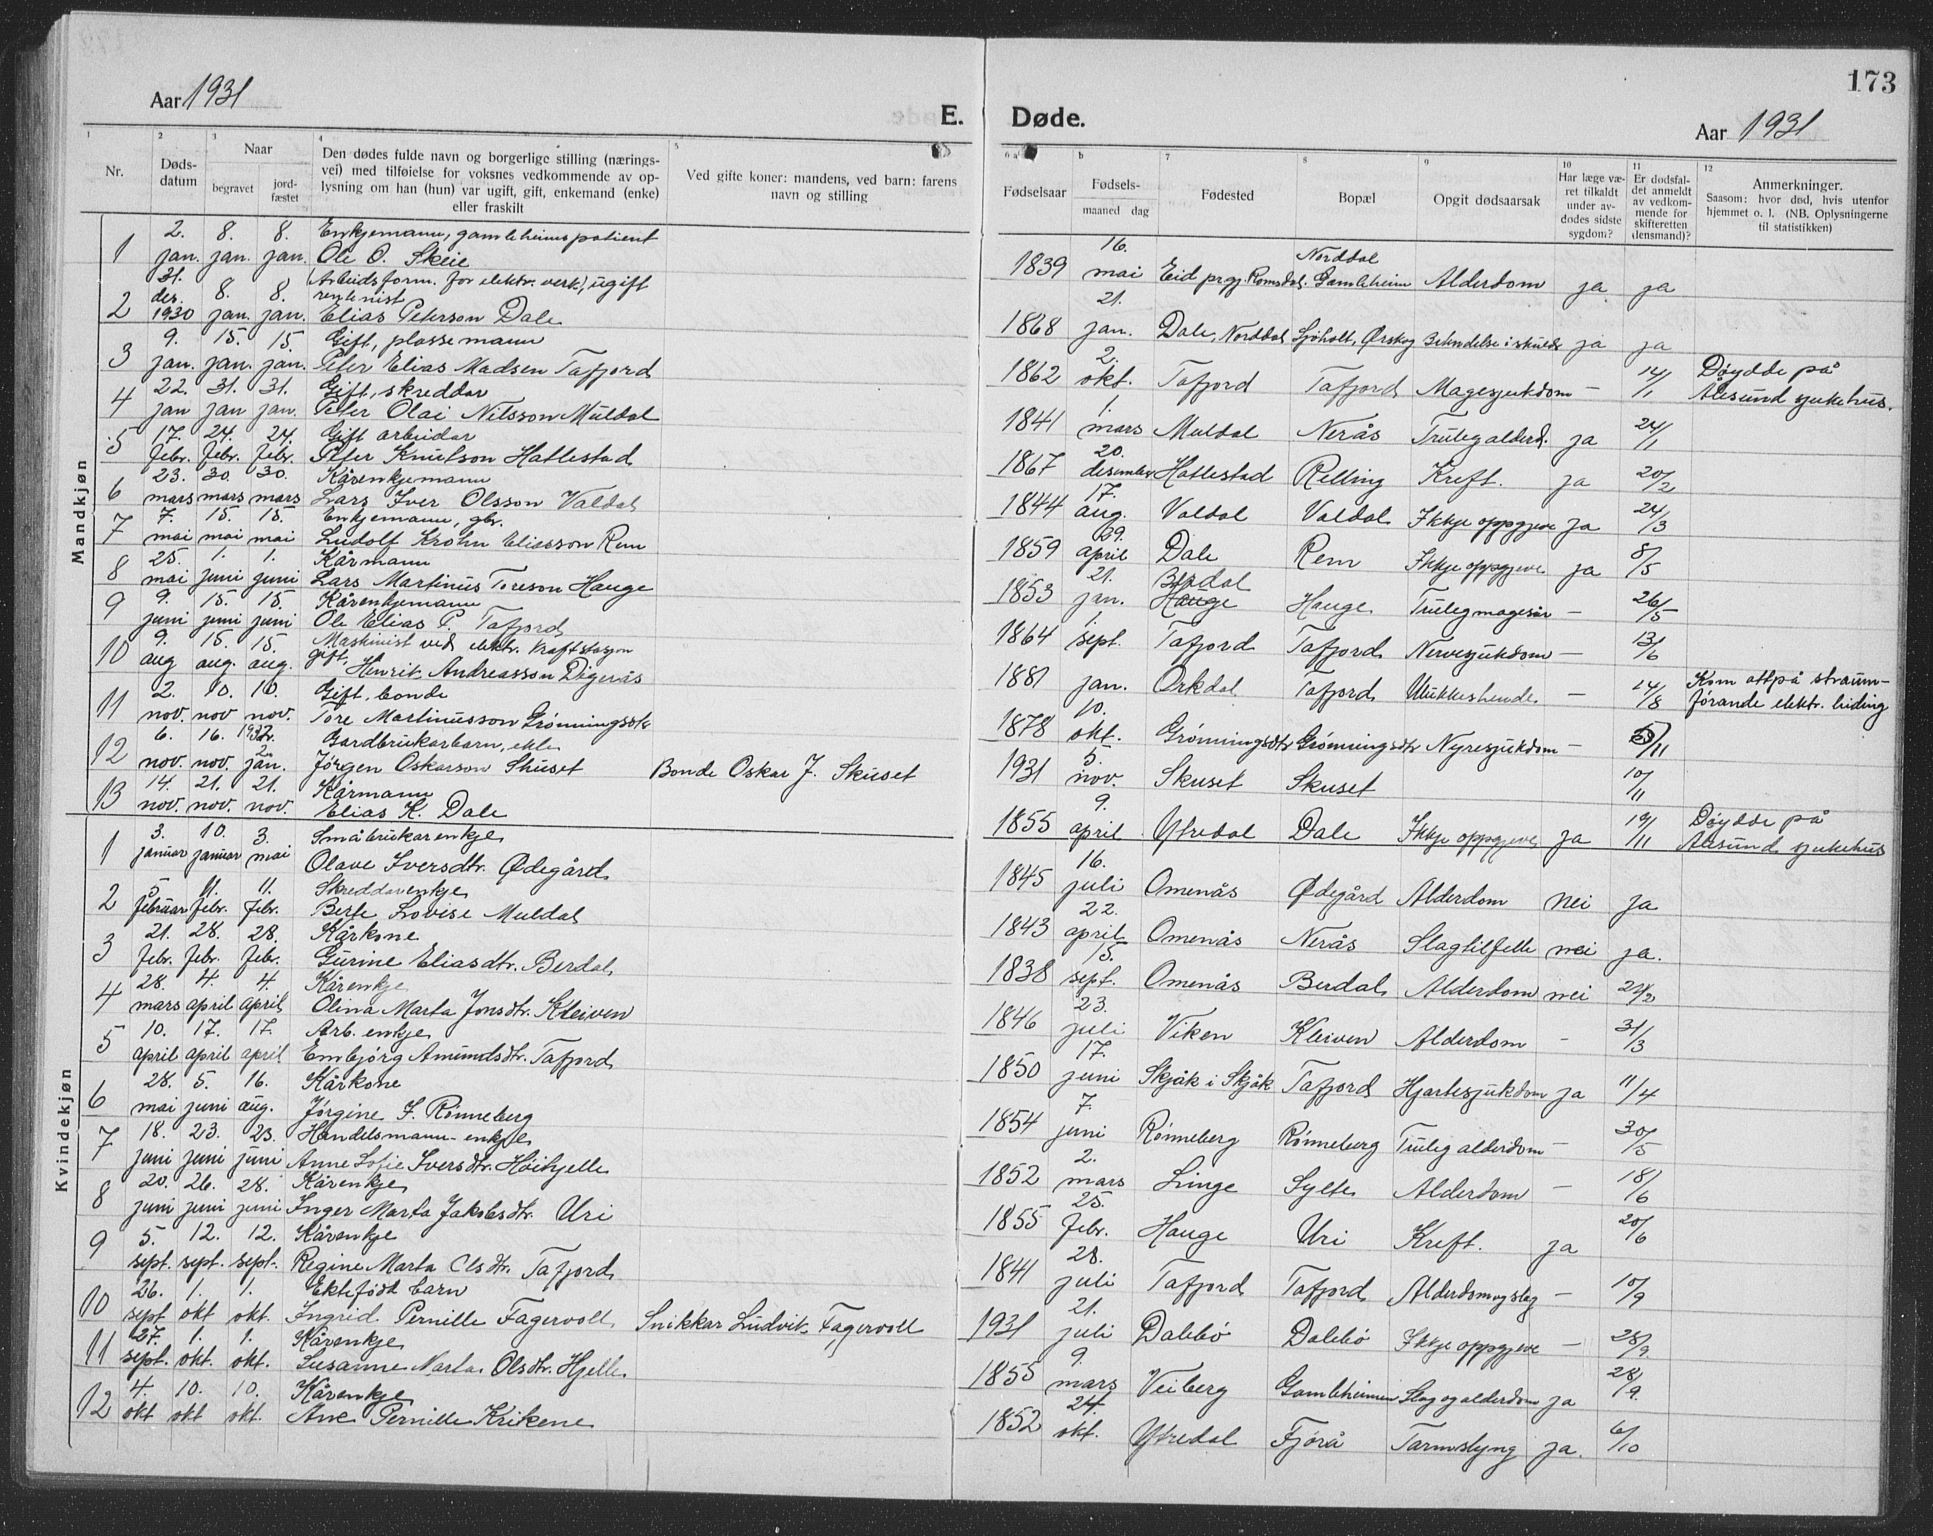 173
Aar 1931
E. Døde.
Aar 1931
1 2 3 4 5
Nr.
Døds-
datum
Naar
begravet
jord-
fæstet
Den dødes fulde navn og borgerlige stilling (nærings-
vei) med tilføielse for voksnes vedkommende av op-
lysning om han (hun) var ugift, gift, enkemand (enke)
eller fraskilt
Ved gifte koner: mandens, ved barn: farens
navn og stilling
6 a b 7 8 9 10 11 12
Fødselsaar
Fødsels-
maaned dag
Fødested
Bopæl
Opgit dødsaarsak
Har læge væ-
ret tilkaldt
under av-
dødes sidste
sygdom?
Er dødsfal-
det anmeldt
av vedkom-
mende for
skifteretten
(lensmand)?
Anmerkninger.
Saasom: hvor død, hvis utenfor
hjemmet o. l. (NB. Oplysningerne
til statistikken)
Mandkjøn
2. 8. 8. Enkjemann, gamleheimspatient
1 jan. jan. jan. Ole O. Skeie
31. (Arbeidsform. for elektr. verk), ugift
des. 8. 8. rentenist
2 1930 jan. jan. Elias Peterson Dale
9. 15. 15. Gift, plassemann
3 jan. jan. jan. Peter Elias Madsen Tafjord
22. 31. 31. Gift, skreddar
4 jan jan jan. Peter Olai Nilsson Muldal
17. 24. 24. Gift arbeidar
5 febr. febr. febr. Peter Knutson Hattestad
23. 30. 30. Kårenkjemann
6 mars mars mars Lars Iver Olsson Valdal
7. 15. 15. Enkjemann, gbr.
7 mai mai mai Ludolf Krohn Eliasson Rem
25. 1. 1. Kårmann
8 mai juni juni Lars Martinus Toreson Hauge
9. 15. 15. Kårenkjemann
9 juni juni juni Ole Elias P. Tafjord
9. 15. 15. Maskinist ved elektr. kraftstasjon
10 aug aug. aug. gift, Henrik Andreasson Digernes
2. 10. 10. Gift, bonde
11 nov. nov nov. Tore Martinusson Grønningsæter
6. 16. 1932 Gardbrukarbarn, ekte
12 nov. nov. 2. jan. Jørgen Oskarson Skuset Bonde Oskar J. Skuset
14. 21. 21. Kårmann
13 nov. nov. nov. Elias K. Dale
Kvindekjøn
3. 10. 3. Småbrukarenkje
1 januar januar mai Olave Iversdtr. Ødegård
5 11. 11. Skreddarenkje
2 februar febr. febr. Berte Lovise Muldal
21. 28. 28. Kårkone
3 febr. febr. febr. Gurine Eliasdtr. Berdal
28. 4. 4. Kårenkje
4 mars april april Olina Marta Jonsdtr. Kleiven
10. 17. 17. Arb. enkje
5 april april april Embjørg Amundsdtr. Tafjord
28. 5. 16. Kårkone
6 mai juni aug. Jørgine I. Rønneberg
18. 23. 23. Handelsmann-enkje
7 juni juni juni Anne Sofie Iversdtr. Høihjelle
20. 26. 28. Kårenkje
8 juni juni juni Inger Marta Jakobsdtr. Uri
5. 12. 12. Kårenkje
9 sept. sept. sept. Regine Marta Olsdtr. Tafjord
26. 1. 1. Ektefødt barn
10 sept okt okt. Ingrid Pernille Fagervoll Snikkar Ludvik Fagervoll
27. 1. 1. Kårenkje
11 sept. okt. okt. Susanne Marta Olsdtr. Hjelle
4. 10. 10. Kårenkje
12 okt okt okt. Ane Pernille Krikene
16. Norddal
1839 mai Eid prgj. Romsdal. Gamleheim Alderdom ja ja
21.
1868 jan. Dale, Norddal Sjøholt, Ørskog ja ja
2. Døydde på
1862 okt. Tafjord Tafjord Magesjukdom — 14/1 Ålesund sjukehus.
1.
1841 mars Muldal Nerås Truleg alderd. ja 24/1
20.
1867 desember Hattestad Relling Kreft. ja 20/2
17.
1844 aug. Valdal Valdal Ikkje oppgjeve ja 24/3
29.
1859 april Dale Rem Ikkje oppgjeve ja 8/5
21. Berdal
1853 jan. Hauge Hauge Truleg magesår — 26/5
1.
1864 sept. Tafjord Tafjord Nervesjukdom — 13/6
Kom attpå straum-
1881 jan. Orkdal Tafjord Ulukkeshende — 14/8 førande elektr. leiding
10.
1878 okt. Grønningsætr Grønningsætr Nyresjukdom — 5/11
5.
1931 nov. Skuset Skuset 10/11
9. Døydde på
1855 april Ytredal Dale Ikkje oppgjeve ja 19/11 Ålesund sjukehus
16.
1845 juli Omenås Ødegård Alderdom nei ja
22.
1843 april Omenås Nerås Slagtilfelle nei ja.
15.
1838 sept. Omenås Berdal Alderdom nei 24/2
23.
1846 juli Viken Kleiven Alderdom — 31/3
17.
1850 juni Skjåk i Skjåk Tafjord Hjartesjukdom ja 11/4
7.
1854 juni Rønneberg Rønneberg Truleg alderdom — 30/5
2.
1852 mars Linge Sylte Alderdom — 18/6
25.
1855 febr. Hauge Uri Kreft. ja 20/6
28.
1841 juli Tafjord Tafjord Alderdom og slag — 10/9
21.
1931 juli Dalebø Dalebø Ikkje oppgjeve — 28/9
9.
1855 mars Veiberg Gamleheimen Slag og alderdom ja 28/9
24.
1852 okt. Ytredal Fjørå Tarmslyng ja. 6/10